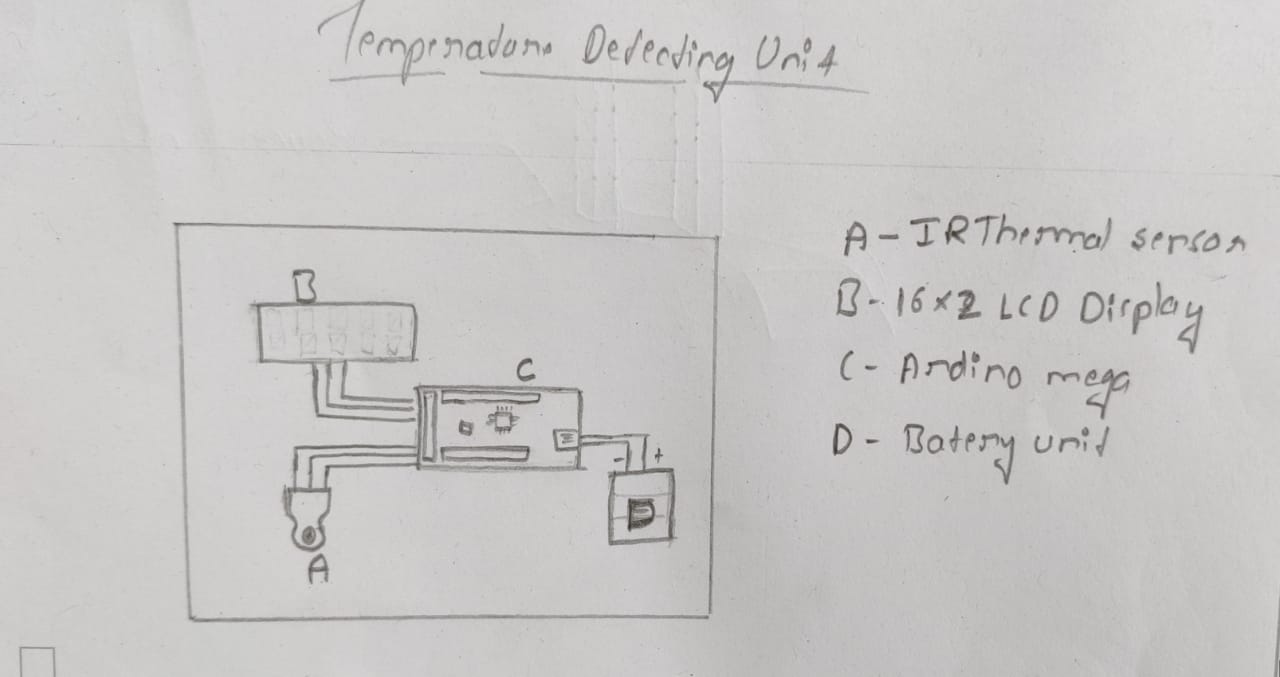 Temperature Detecting Unit
A - IR Thermal sensor
B - 16×2 LCD Display
C - Ardino mega
D - Batery unit
B
C
- +
D
A